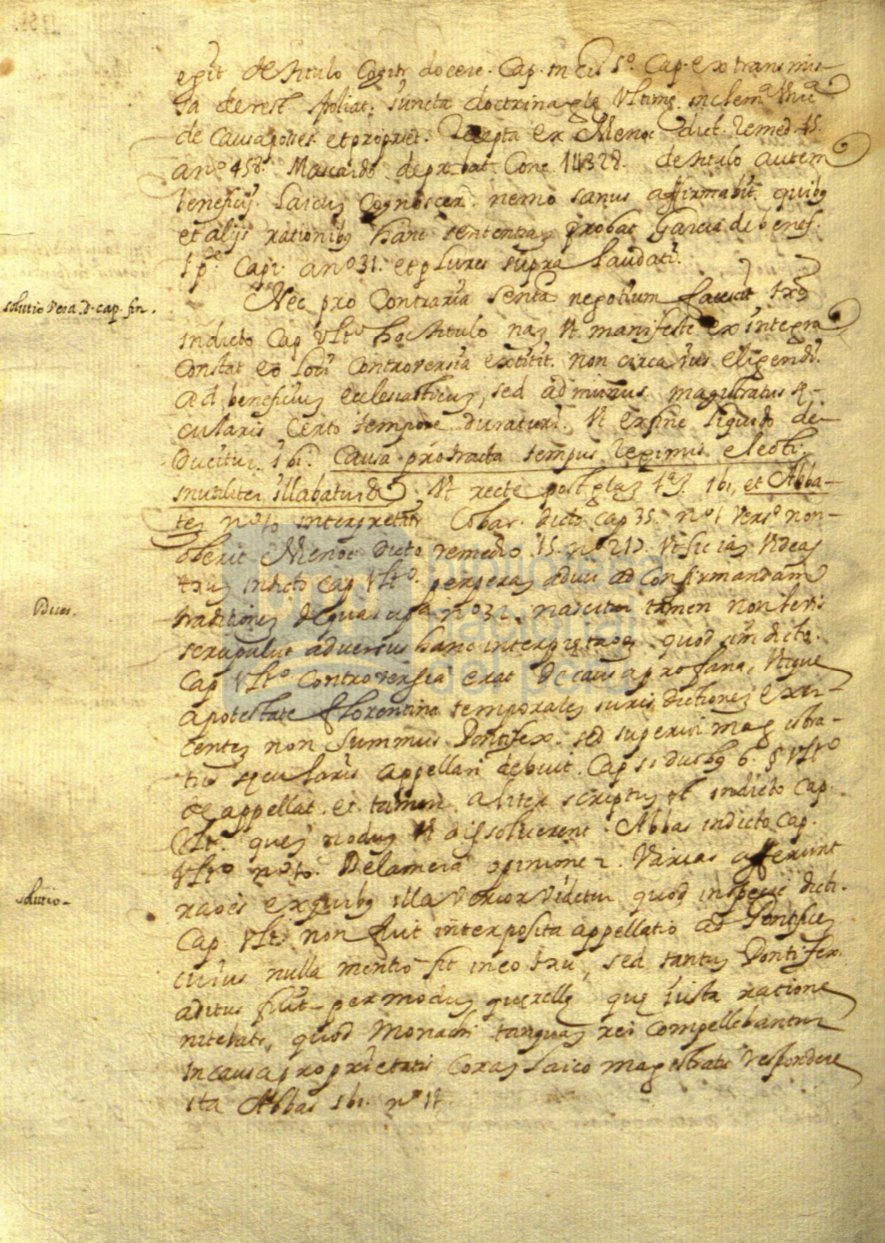 egit de titulo cogitr docere. Cap. in eis 1º. Cap. ex transmis-
sa de rest. spoliat. iuncta doctrina glę ultimę in clemª. Unicª
de causa posses. et propriet. recepta ex Menoc. dict. remed. 15.
a nº 458. Mascardo de probat. Conc. 1432 8. de titulo autem
beneficij Laicus cognoscere nemo sanus affirmabit. quibꝰ
et alijs rationibꝰ hanc sententiaȝ probat Garcia de benef.
1 p. Cap. a nº 31. et plures supra laudati.
solutio vera. D. cap. fin.
Nec pro contraria sentª negotium facessit tex
in dicto Cap ultº hoc titulo naȝ ut manifeste ex integra
constat eo loci controversia extitit non circa ius eligendi
ad beneficiuȝ ecclesiasticuȝ, sed ad munus magistratus sę-
cularis certo tempore duraturi. Ut ex fine liquido de-
ducitur. ibi. causa protracta tempus regiminis electi
inutiliter illabatur &. Ut recte post glaȝ ibi, et Abba-
teȝ nº 10 interpretatr Cobar. dicto cap 35. nº 1 versº non
oberit Menoc dicto remedio. 15. nº 217. Ut sic iaȝ videas
texȝ in dicto cap ultº. perperaȝ adduci ad confirmandam
Dices.
traditioneȝ de qua supª nº 32. nascitur tamen non levis
scrupulus adversus hanc interpretroeȝ. quod cum dicto.
Cap ultº controversia erat de causa profana, utique
a potestate florentina temporaleȝ iurisdictioneȝ exer-
centeȝ non summus Pontifex. sed superior magistra-
tus sęcularis appellari debuit. Cap. si duobꝰ 6. § ultº
de appellat. et tamen aliter scriptuȝ est in dicto Cap.
ultº. queȝ noduȝ ut dissolverent. Abbas in dicto cap.
ultº nº 10. De la mera opinione 2. varias afferunt
solutio-
raoēs ex quibꝰ illa verior videtur quod in specie dicti.
Cap. ultº non fuit interposita appellatio ad Pontificeȝ
cuius nulla mentio fit in eo texu, sed tantuȝ Pontifex.
aditus fuit per moduȝ querellę quę iusta ratione
nitebatr, quod Monachi tanquaȝ rei compellebantur
in causa proprietatis coraȝ laico magistratu respondere
ita Abbas ibi. nº 11.
biblioteca
nacional
del perú